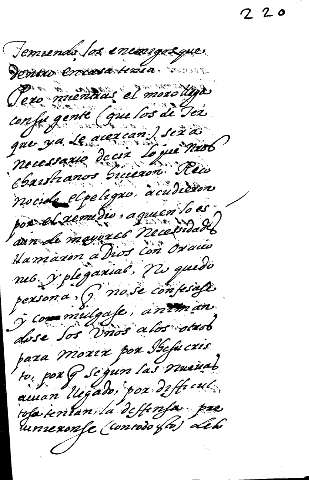 220
Temiendo los enemigos que
dentro en casa tenia.
Pero mientras el moro llega
con su gente (que los de Fez
que ya se acercan) sera
necessario decir lo que nros
Christianos hicieron. Reco
nocido el peligro, acudieron
por el remedio, a quien lo es
aun de mayores necesidades
llamaron a Dios con oracio
nes, y plegarias, No quedo
persona, q no se confesase
y comulgase, animan
dose los unos a los otros
para morir por Jhesucris
to, por q segun las nuevas
avian llegado, por dificul
tosa tenian la deffensa. pre
vinieronse (con todo